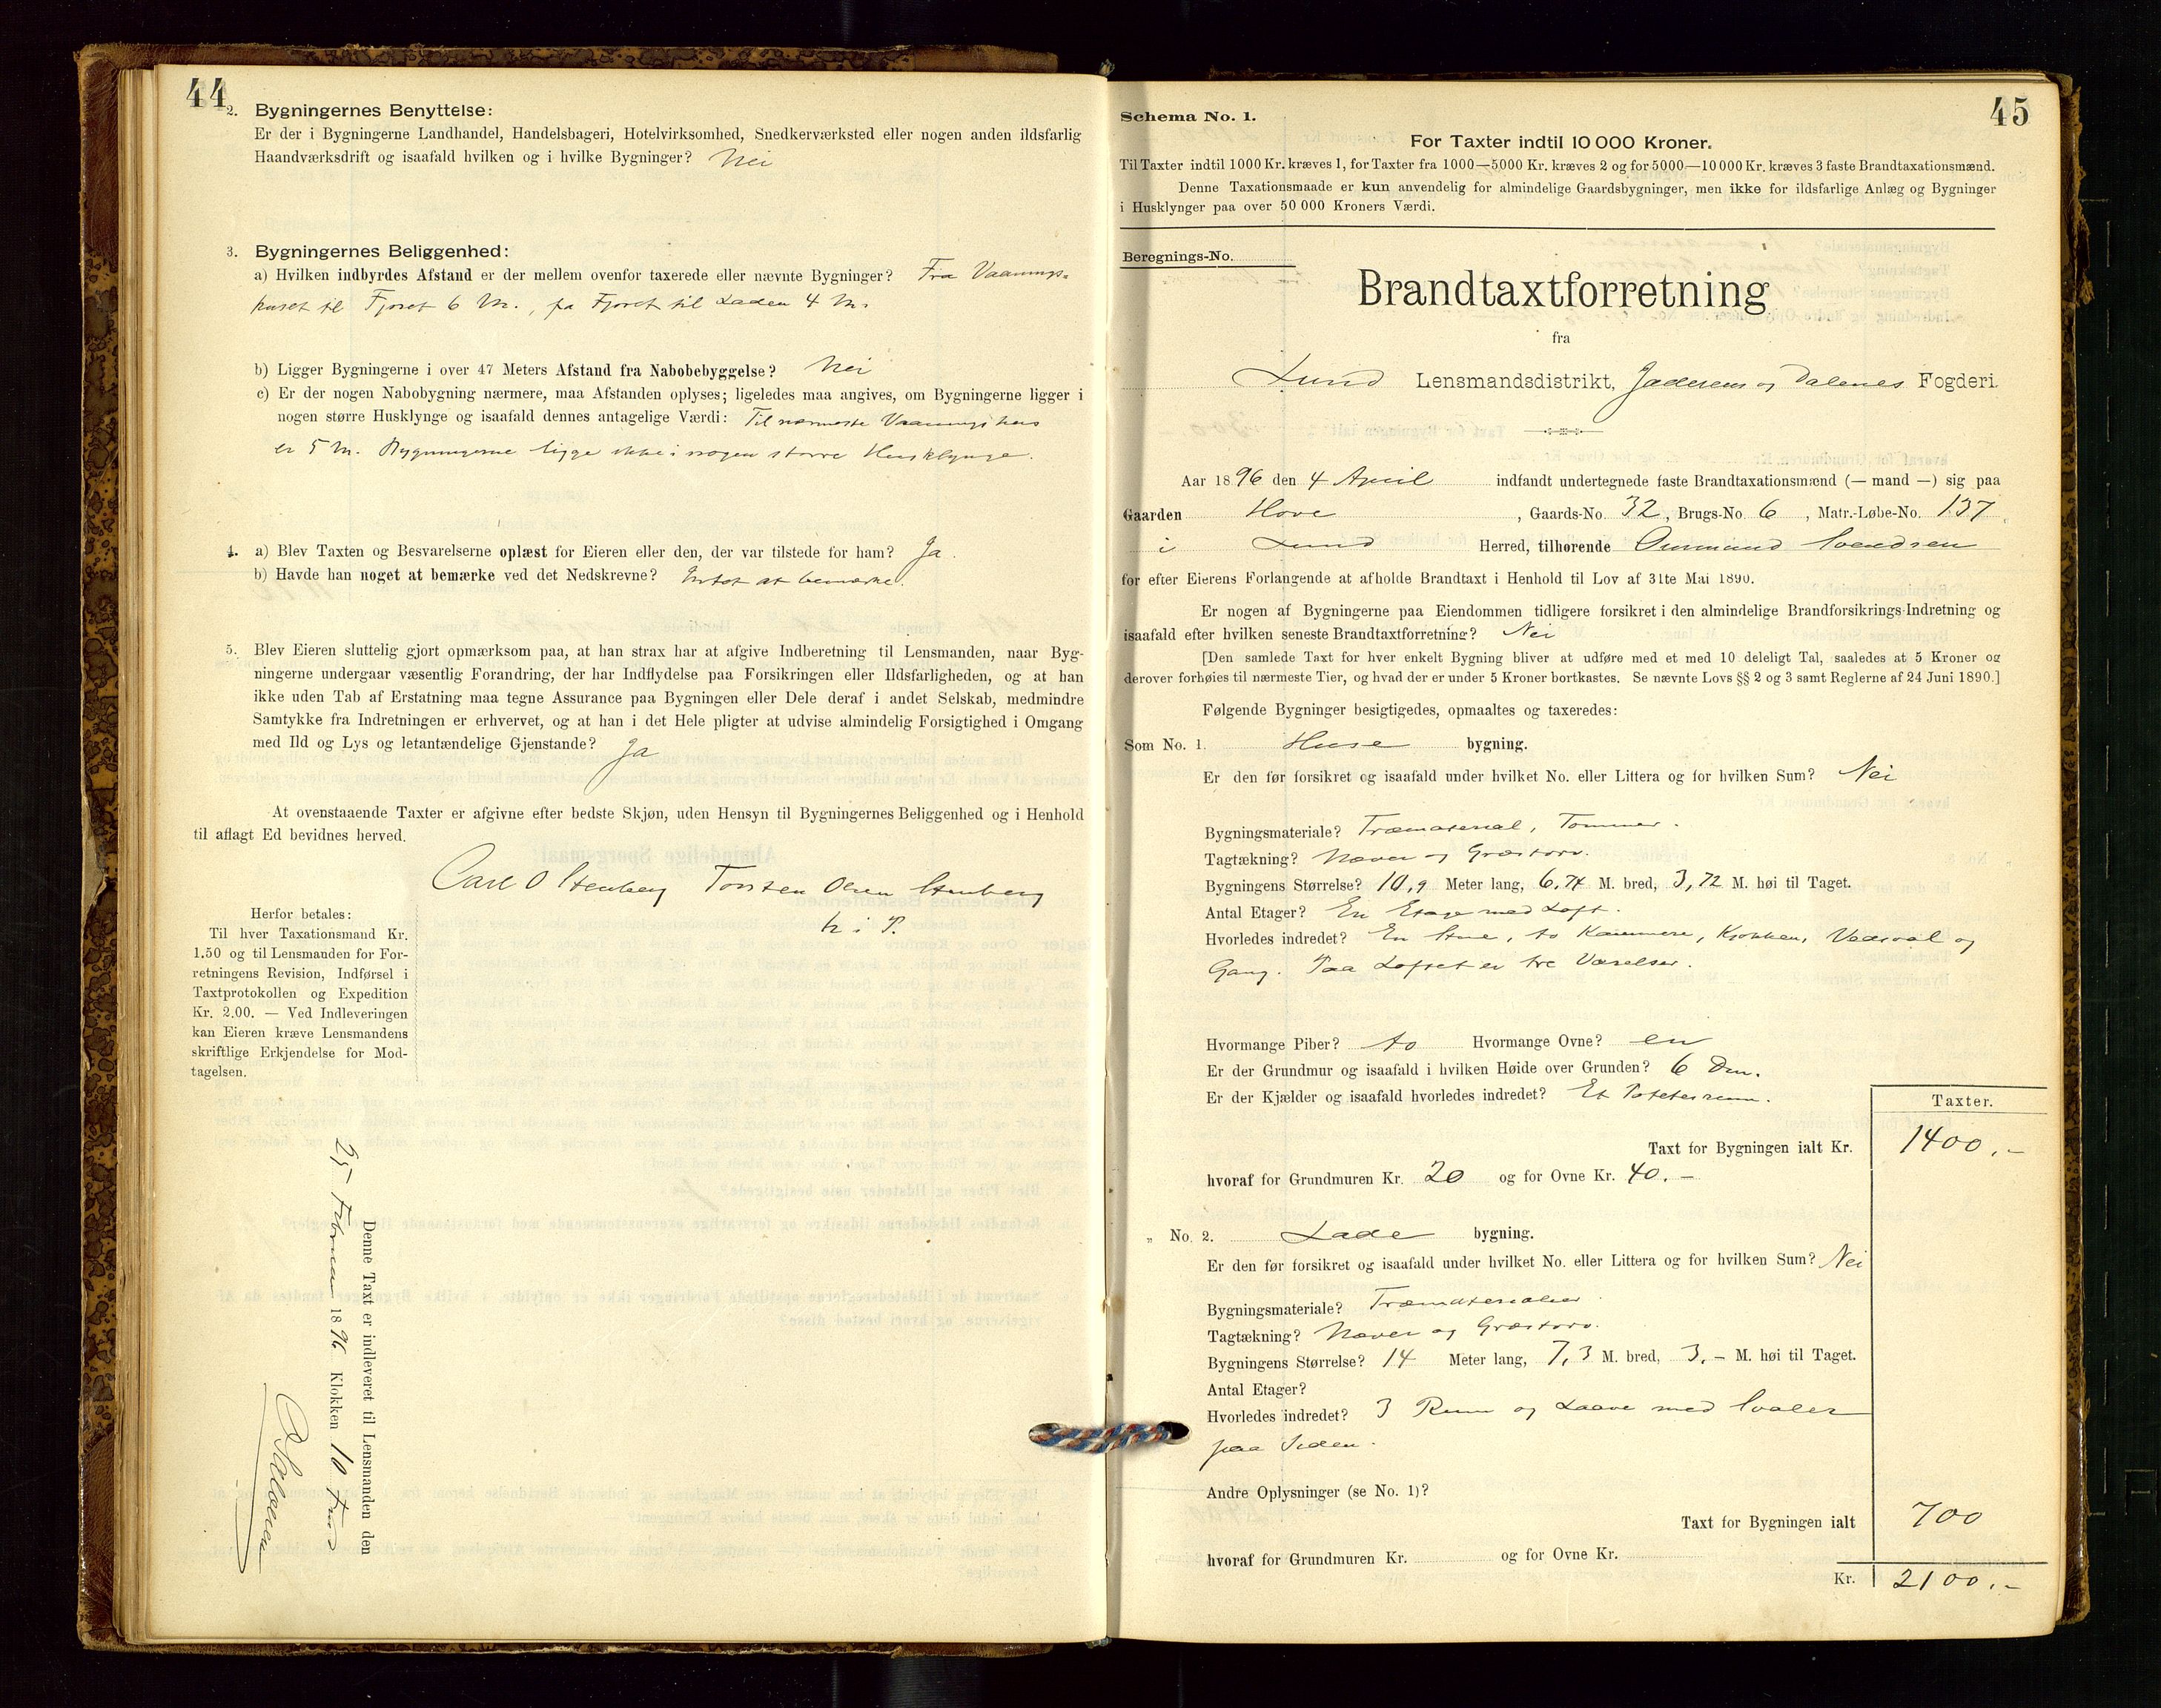 44
2. Bygningernes Benyttelse:
Er der i Bygningerne Landhandel, Handelsbageri, Hotelvirksomhed, Snedkerværksted eller nogen anden ildsfarlig
Haandværksdrift og isaafald hvilken og i hvilke Bygninger? Nei
3. Bygningernes Beliggenhed:
a) Hvilken indbyrdes Afstand er der mellem ovenfor taxerede eller nævnte Bygninger? Fra Vaanings-
huset til Fjøset 6 M., fra Fjøset til Laden 4 M.
b) Ligger Bygningerne i over 47 Meters Afstand fra Nabobebyggelse? Nei
c) Er der nogen Nabobygning nærmere, maa Afstanden oplyses; ligeledes maa angives, om Bygningerne ligger i
nogen større Husklynge og isaafald dennes antagelige Værdi: Til nærmeste Vaaningshus
er 5 M. Bygningerne ligge ikke i nogen større Husklynge.
4. a) Blev Taxten og Besvarelserne oplæst for Eieren eller den, der var tilstede for ham? Ja.
b) Havde han noget at bemærke ved det Nedskrevne? Intet at bemærke.
5. Blev Eieren sluttelig gjort opmærksom paa, at han strax har at afgive Indberetning til Lensmanden, naar Byg-
ningerne undergaar væsentlig Forandring, der har Indflydelse paa Forsikringen eller Ildsfarligheden, og at han
ikke uden Tab af Erstatning maa tegne Assurance paa Bygningen eller Dele deraf i andet Selskab, medmindre
Samtykke fra Indretningen er erhvervet, og at han i det Hele pligter at udvise almindelig Forsigtighed i Omgang
med Ild og Lys og letantændelige Gjenstande? Ja
At ovenstaaende Taxter er afgivne efter bedste Skjøn, uden Hensyn til Bygningernes Beliggenhed og i Henhold
til aflagt Ed bevidnes herved.
Carl O Stenberg Torsten Olsen Stenberg
Herfor betales:
Til hver Taxationsmand Kr.
1.50 og til Lensmanden for For-
retningens Revision, Indførsel i
Taxtprotokollen og Expedition
Kr. 2.00. — Ved Indleveringen
kan Eieren kræve Lensmandens
skriftlige Erkjendelse for Mod-
tagelsen.
Denne Taxt er indleveret til Lensmanden den
25 Februar 1896 Klokken 10 Form
45
Schema No. 1.
For Taxter indtil 10 000 Kroner.
Til Taxter indtil 1000 Kr. kræves 1, for Taxter fra 1000—5000 Kr. kræves 2 og for 5000—10 000 Kr. kræves 3 faste Brandtaxationsmænd.
Denne Taxationsmaade er kun anvendelig for almindelige Gaardsbygninger, men ikke for ildsfarlige Anlæg og Bygninger
i Husklynger paa over 50 000 Kroners Værdi.
Beregnings-No.
Brandtaxtforretning
fra
Lund Lensmandsdistrikt, Jæderens og Dalenes Fogderi.
Aar 1896 den 4 April indfandt undertegnede faste Brandtaxationsmænd (— mand —) sig paa
Gaarden Hove, Gaards-No. 32, Brugs-No. 6, Matr.-Løbe-No. 137
i Lund Herred, tilhørende Svendsen
for efter Eierens Forlangende at afholde Brandtaxt i Henhold til Lov af 31te Mai 1890.
Er nogen af Bygningerne paa Eiendommen tidligere forsikret i den almindelige Brandforsikrings-Indretning og
isaafald efter hvilken seneste Brandtaxtforretning? Nei
[Den samlede Taxt for hver enkelt Bygning bliver at udføre med et med 10 deleligt Tal, saaledes at 5 Kroner og
derover forhøies til nærmeste Tier, og hvad der er under 5 Kroner bortkastes. Se nævnte Lovs §§ 2 og 3 samt Reglerne af 24 Juni 1890.]
Følgende Bygninger besigtigedes, opmaaltes og taxeredes:
Som No. 1. Huse bygning.
Er den før forsikret og isaafald under hvilket No. eller Littera og for hvilken Sum? Nei
Bygningsmateriale? Træmaterial, Tømmer.
Tagtækning? Næver og Græstorv.
Bygningens Størrelse? 10,9 Meter lang, 6,74 M. bred, 3,72 M. høi til Taget.
Antal Etager? En Etage med Loft.
Hvorledes indredet? En Stue, to Kammere, Kjøkken, Vedsval og
Gang. Paa Loftet er tre Værelser.
Hvormange Piber? to Hvormange Ovne? en
Er der Grundmur og isaafald i hvilken Høide over Grunden? 6 Dm.
Er der Kjælder og isaafald hvorledes indredet? Et Potetesrum.
Taxter.
Taxt for Bygningen ialt Kr. 1400.-
hvoraf for Grundmuren Kr. 20 og for Ovne Kr. 40.-
„ No. 2. Lade bygning.
Er den før forsikret og isaafald under hvilket No. eller Littera og for hvilken Sum? Nei
Bygningsmateriale? Træmaterialier.
Tagtækning? Næver og Græstorv.
Bygningens Størrelse? 14 Meter lang, 7,3 M. bred, 3.- M. høi til Taget.
Antal Etager?
Hvorledes indredet? 3 Rum og Laave med Svaler
paa Siden.
Andre Oplysninger (se No. 1)?
Taxt for Bygningen ialt 700
hvoraf for Grundmuren Kr. og for Ovne Kr.
Kr. 2100.-